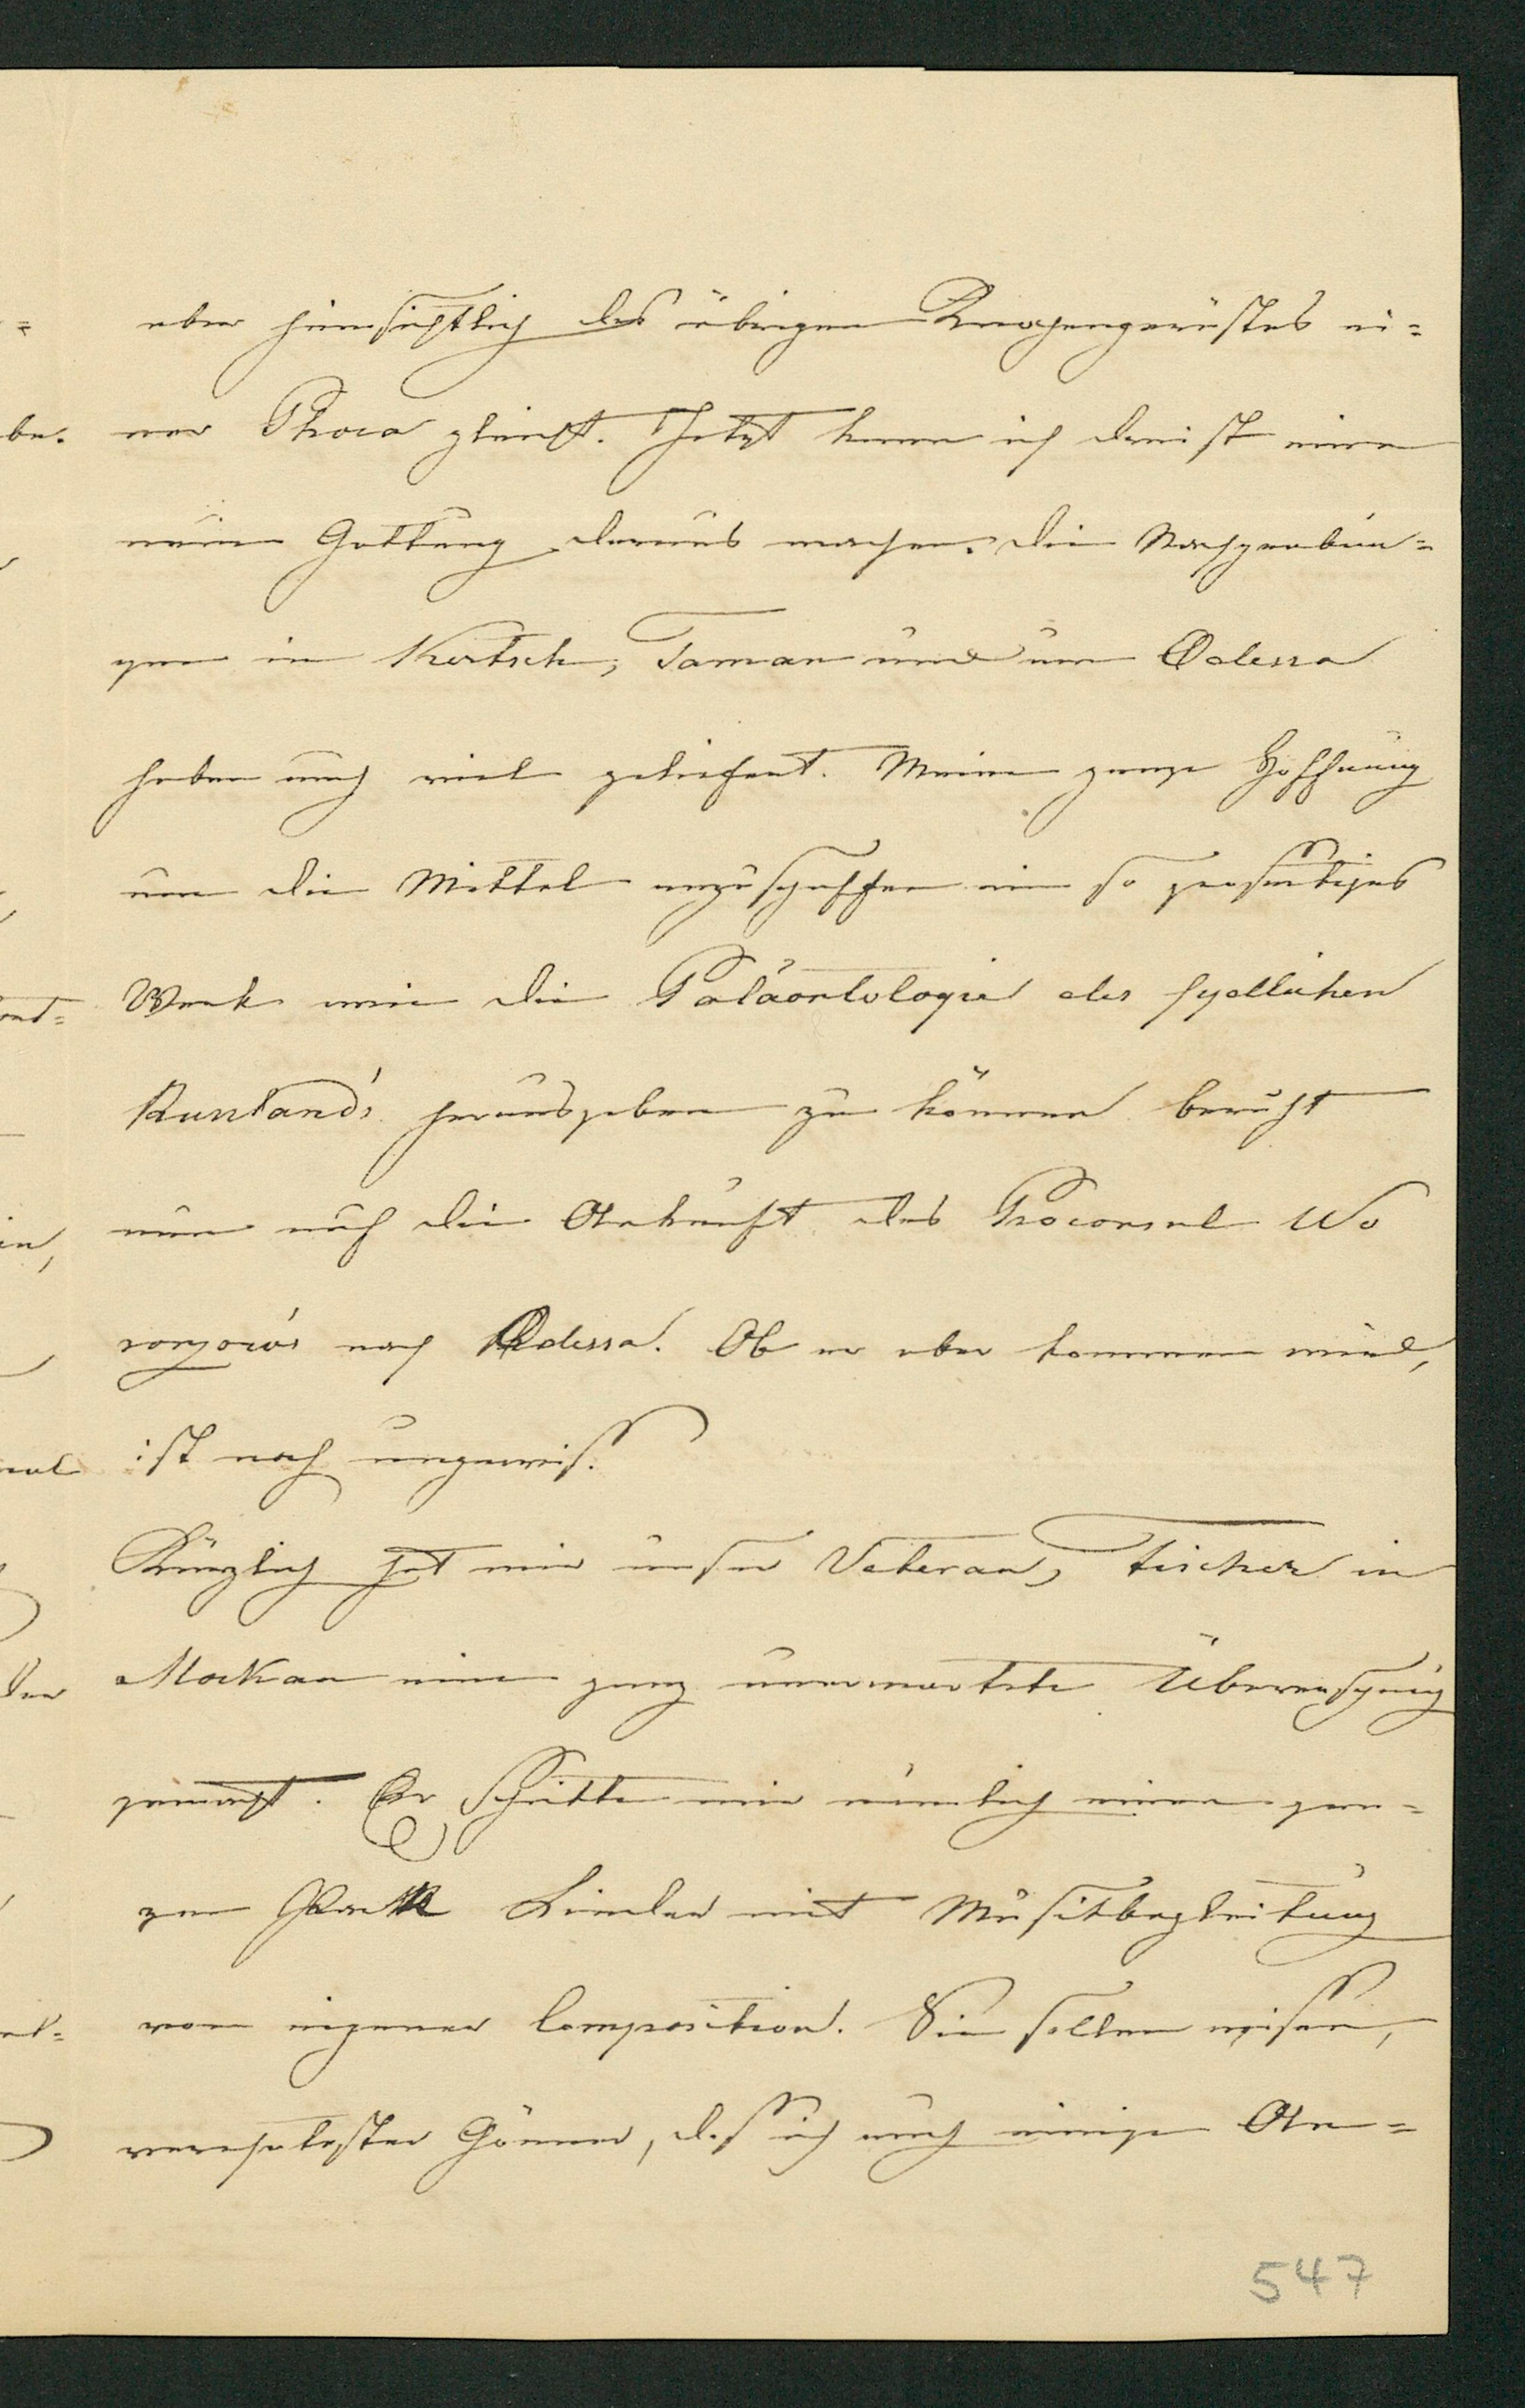 aber hinsichtlich des übrigen Knochengerüstes ei=
ner Phoca gleicht. Jetzt kann ich dreist eine
neue Gattung daraus machen. Die Nachgrabun=
gen in Kertsch, Taman und um Odessa
haben auch viel geliefert. Meine ganze Hoffnung
um die Mittel anzuschaffen ein so großartiges
Werk wie die Paläontologie des sydlichen
Russland's herausgeben zu können beruht
nun auf die Ankunft des Proconsul Wo
ronzow's nach Odessa. Ob er aber kommen wird,
ist noch ungewiß.
Kürzlich hat mir unser Veteran, Fischer in
Moskau eine ganz unerwartete Überraschung
gemacht. Er schickte mir nämlich einen gan=
zen Pack Lieder mit Musikbegleitung
von eigener Composition. Sie sollen wissen,
verehrtester Gönner, daß ich auch einige An=
547